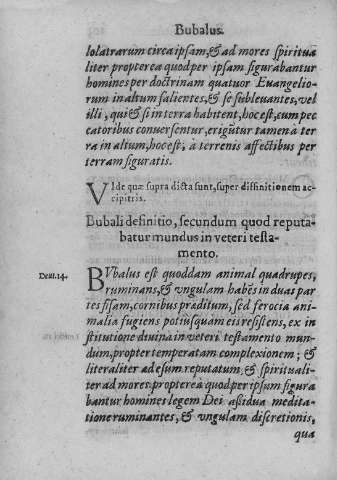 Bubalus.
lolatrarum circa ipsam, & ad mores spiritua
liter propterea quod per ipsam figurabantur
homines per doctrinam quatuor Euangelio-
rum in altum salientes, & se subleuantes, vel
illi, qui & si in terra habitent, hoc est, cum pec
catoribus conuersentur, eriguntur tamen à ter
ra in altum, hoc est, à terrenis affectibus per
terram figuratis.
VIde quæ supra dicta sunt, super diffinitionem ac-
cipitris.
Bubali definitio, secundum quod reputa-
batur mundus in veteri testa-
mento.
Deut. 14.
BVbalus est quoddam animal quadrupes,
ruminans, & vngulam habēs in duas par
tes fissam, cornibus præditum, sed ferocia ani-
malia fugiens potius quam eis resistens, ex in
stitutione diuina in veteri testamento mun-
dum, propter temperatam complexionem; &
literaliter ad esum reputatum, & spirituali-
ter ad mores: propterea quod per ipsum figura
bantur homines legem Dei assidua medita-
tione ruminantes, & vngulam discretionis,
qua